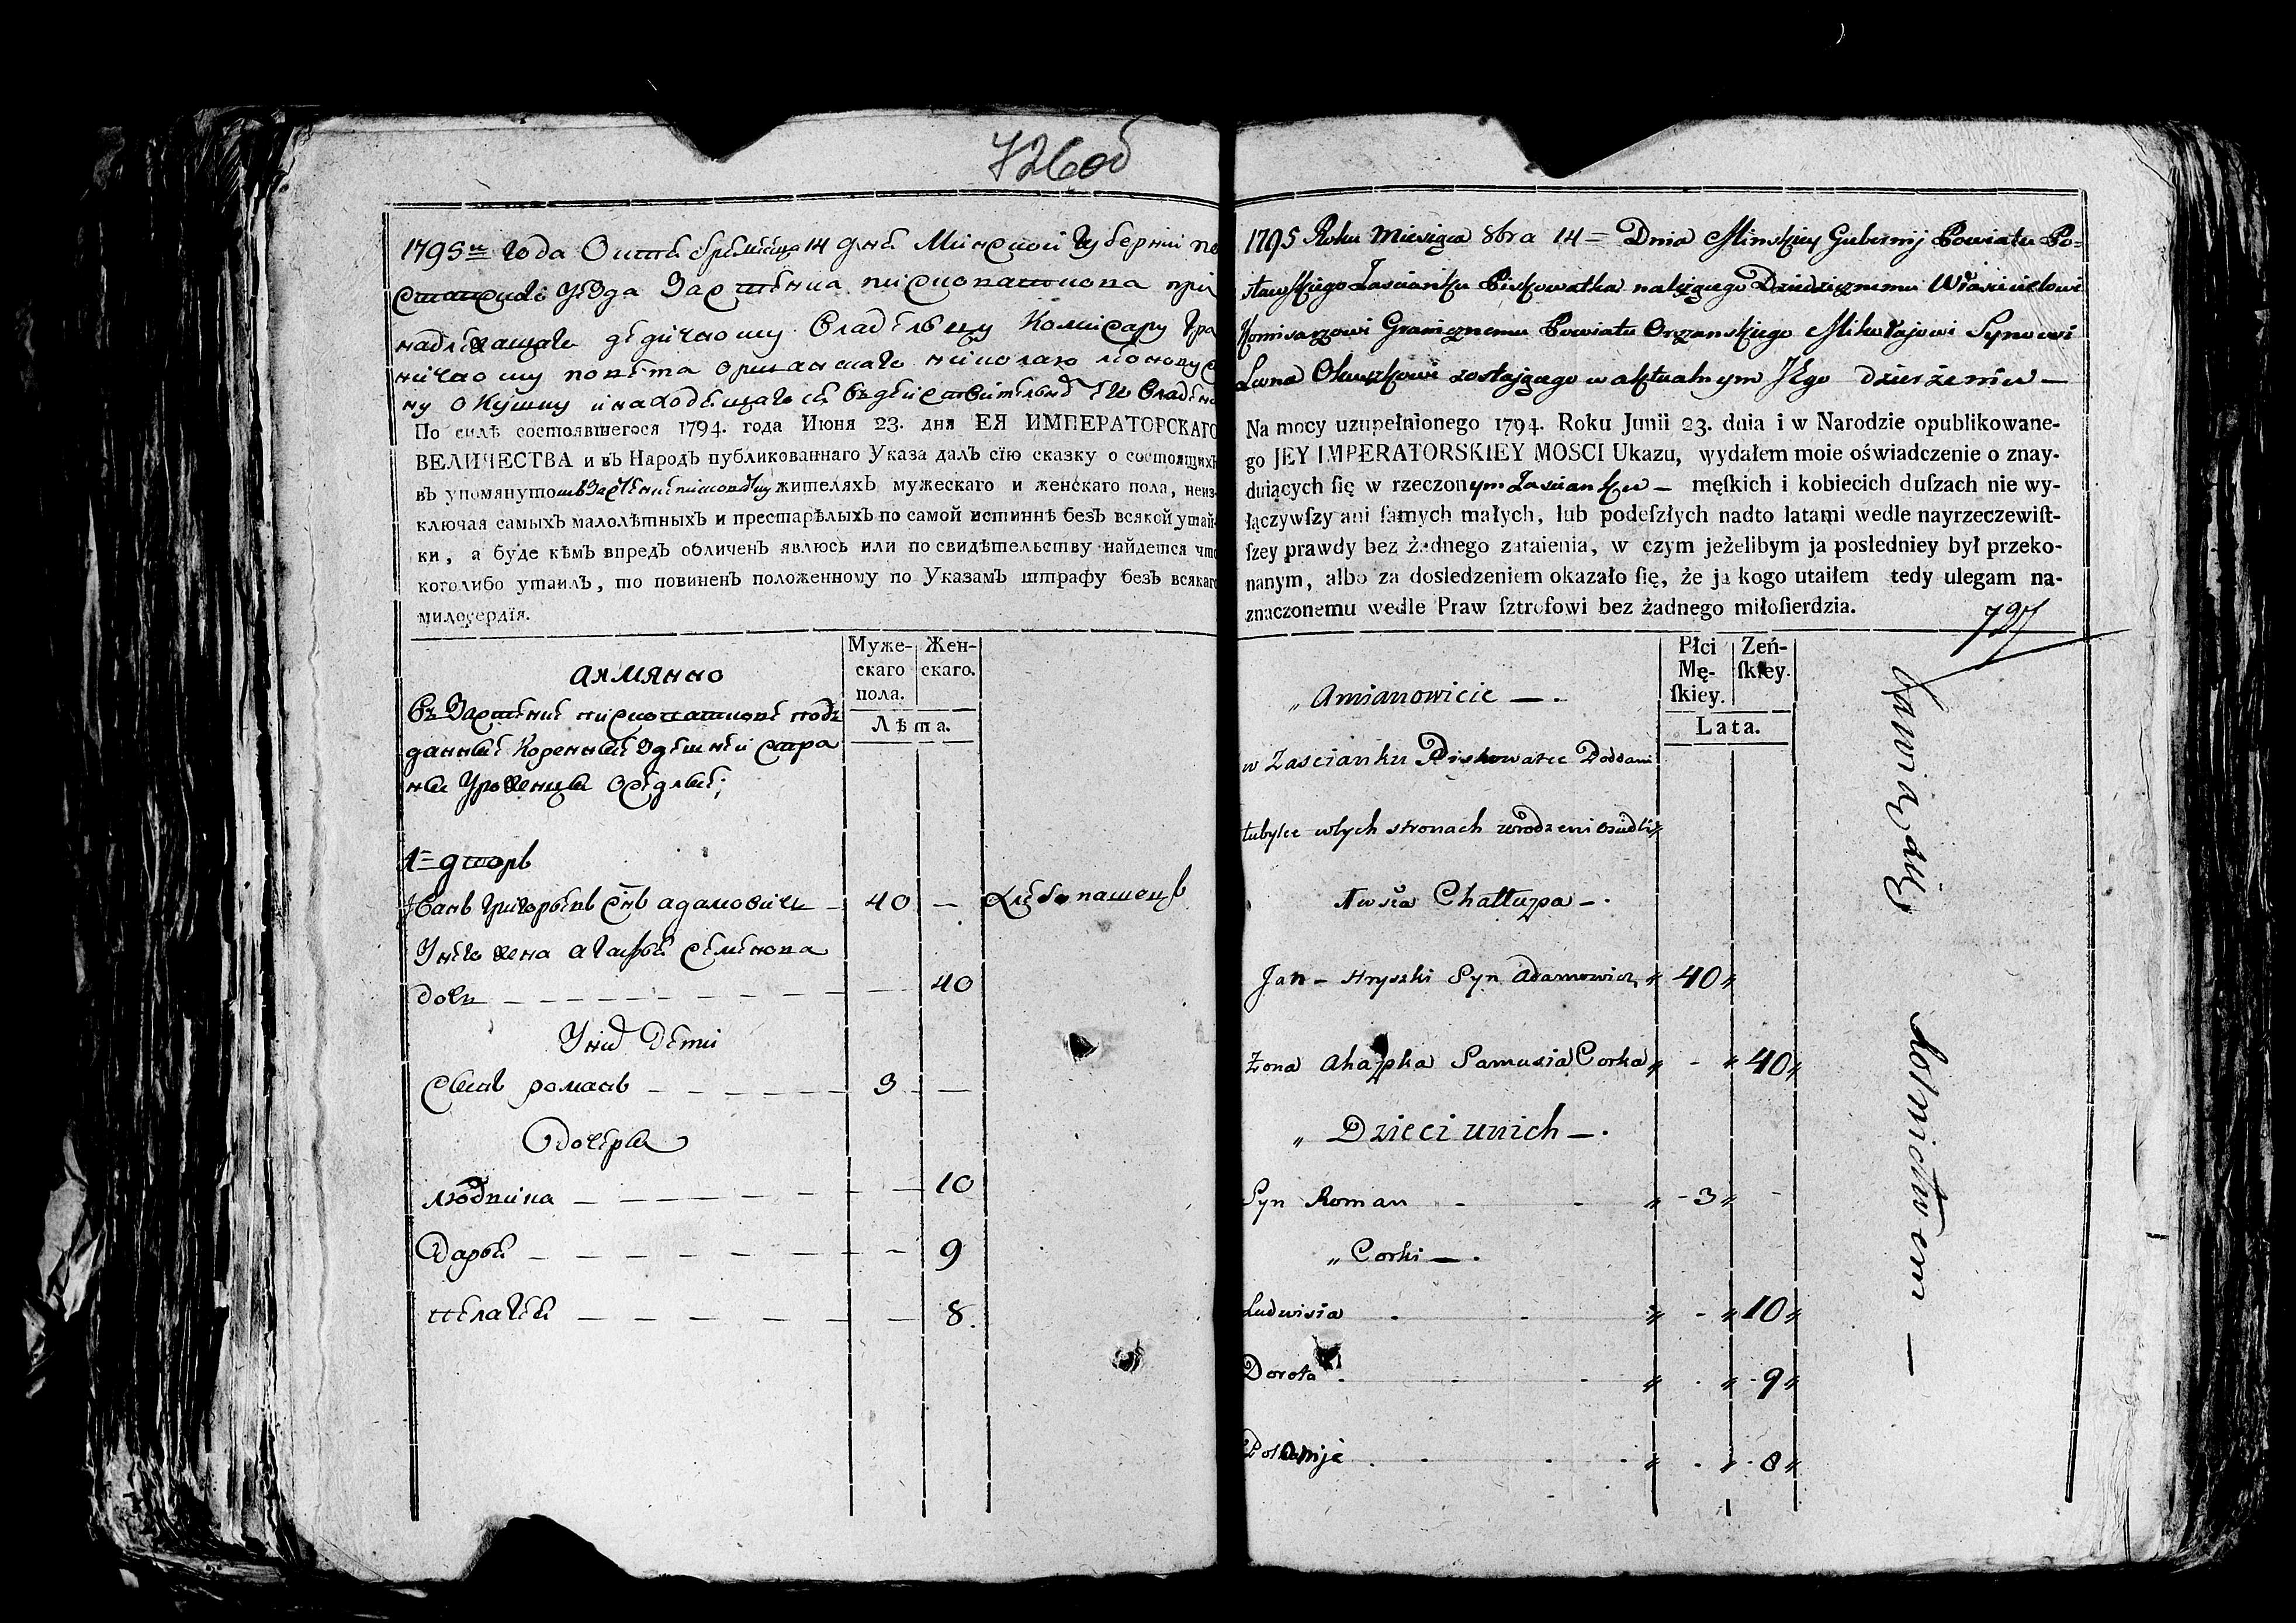 726об
1795 года Октебря месеца 14 дне Минской Губернии по
ставскаго уезда Застенка писковатиова при
надлежащаго дедичному владелцу Комисару Гра
ничному повета Оршанскаго николаю леонову сы
ну Окушку и находещагося въ действителном его владени
По силѣ состоявшегося 1794. года Июня 23. дня ЕЯ ИМПЕРАТОРСКАГО
ВЕЛИЧЕСТВА и въ Народъ публикованнаго Указа далъ сїю сказку о состоящихъ
въ упомянутомъ Застенке жителяхъ мужескаго и женскаго пола, неиз-
ключая самыхъ малолѣтныхъ и престарѣлыхъ по самой истиннѣ безъ всякой утай-
ки, а буде кѣмъ впредь обличенъ явлюсь или по свидѣтельству найдется что
коголибо утаилъ, то повиненъ положенному по Указамъ штрафу безъ всякаго
милосердїя.
Муже-скаго пола. Жен-скаго.
Лѣта.
Въ Застенке писковатиове под
данные Коренные Здешней стра
ны Уроженцы Оседлые;
1= дворъ
Иванъ Григорьевъ Снъ адамовичъ — 40 — Хлебопашецъ
Унего жена агафья семенова
дочь — 40
Уних Дети
Сынъ романъ — 3 —
Дочеры
людвика — 10
Дарья — 9
пелагея — 8.
1795 Roku Miesiąca 8bra 14= Dnia Minskiey Gubernij Powiatu Po=
stawskiego Zascianku Piskowatka należącego Dziedzicznemu Właścicielowi
Komisarzowi Granicznemu Powiatu Orzanskiego Mikołajowi Synowi
Leona Okuszkowi zostającego w aktualnym Jego dzierżeniu —
Na mocy uzupełnionego 1794. Roku Junii 23. dnia i w Narodzie opublikowane-
go JEY IMPERATORSKIEY MOSCI Ukazu, wydałem moie oświadczenie o znay-
duiących ſię w rzeczonym Zascianku — męſkich i kobiecich duſzach nie wy-
łączywſzy ani ſamych małych, lub podeſzłych nadto latami wedle nayrzeczewiſt-
ſzey prawdy bez żadnego zataienia, w czym jeżelibym ja posledniey był przeko-
nanym, albo za dosledzeniem okazało ſię, że ja kogo utaiłem tedy ulegam na-
znaczonemu wedle Praw ſztrofowi bez żadnego miłoſierdzia.
727
Płci Mę-ſkiey. Zeń-ſkiey.
Lata.
„ Amianowicie —.
w Zascianku Piskowatce Poddani
tubylce w tych stronach urodzeni osiedli
Chałłupa —.
Jan — Hryszki Syn Adamowicz „ 40 „
Żona Ahapka Samusia Corka „ - „ 40 „
„ Dzieci unich —.
Syn Roman „ - 3 „ -
„ Corki —.
Ludwisia „ - „ 10 „
Dorota „ . „ 9 „
„ . „ 8 „